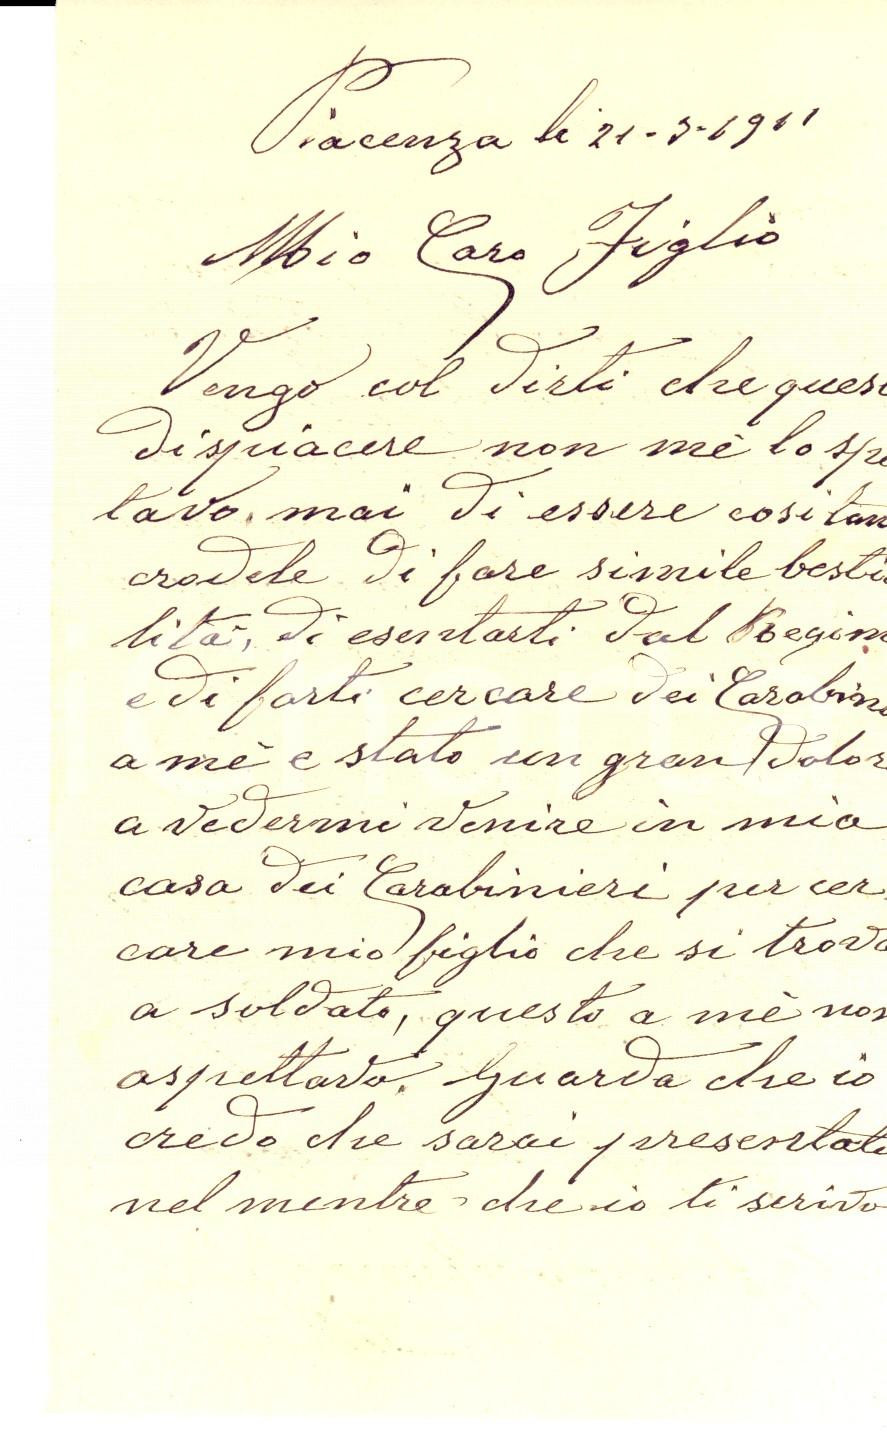 Piacenza li 21-3-1911
Mio Caro Figlio
Vengo col dirti che ques
dispiacere non mè lo spe
tavo. mai di essere cosi tan
crudele di fare simile bestia
lità, di esentarti dal Regim
e di farti cercare dei Carabini
a mè e stato un gran dolor
a vedermi venire in mia
casa dei Carabinieri per cer
care mio figlio che si trova
a soldato, questo a mè non
aspettavo. Guarda che io
credo che sarai presentato
nel mentre che io ti scrivo